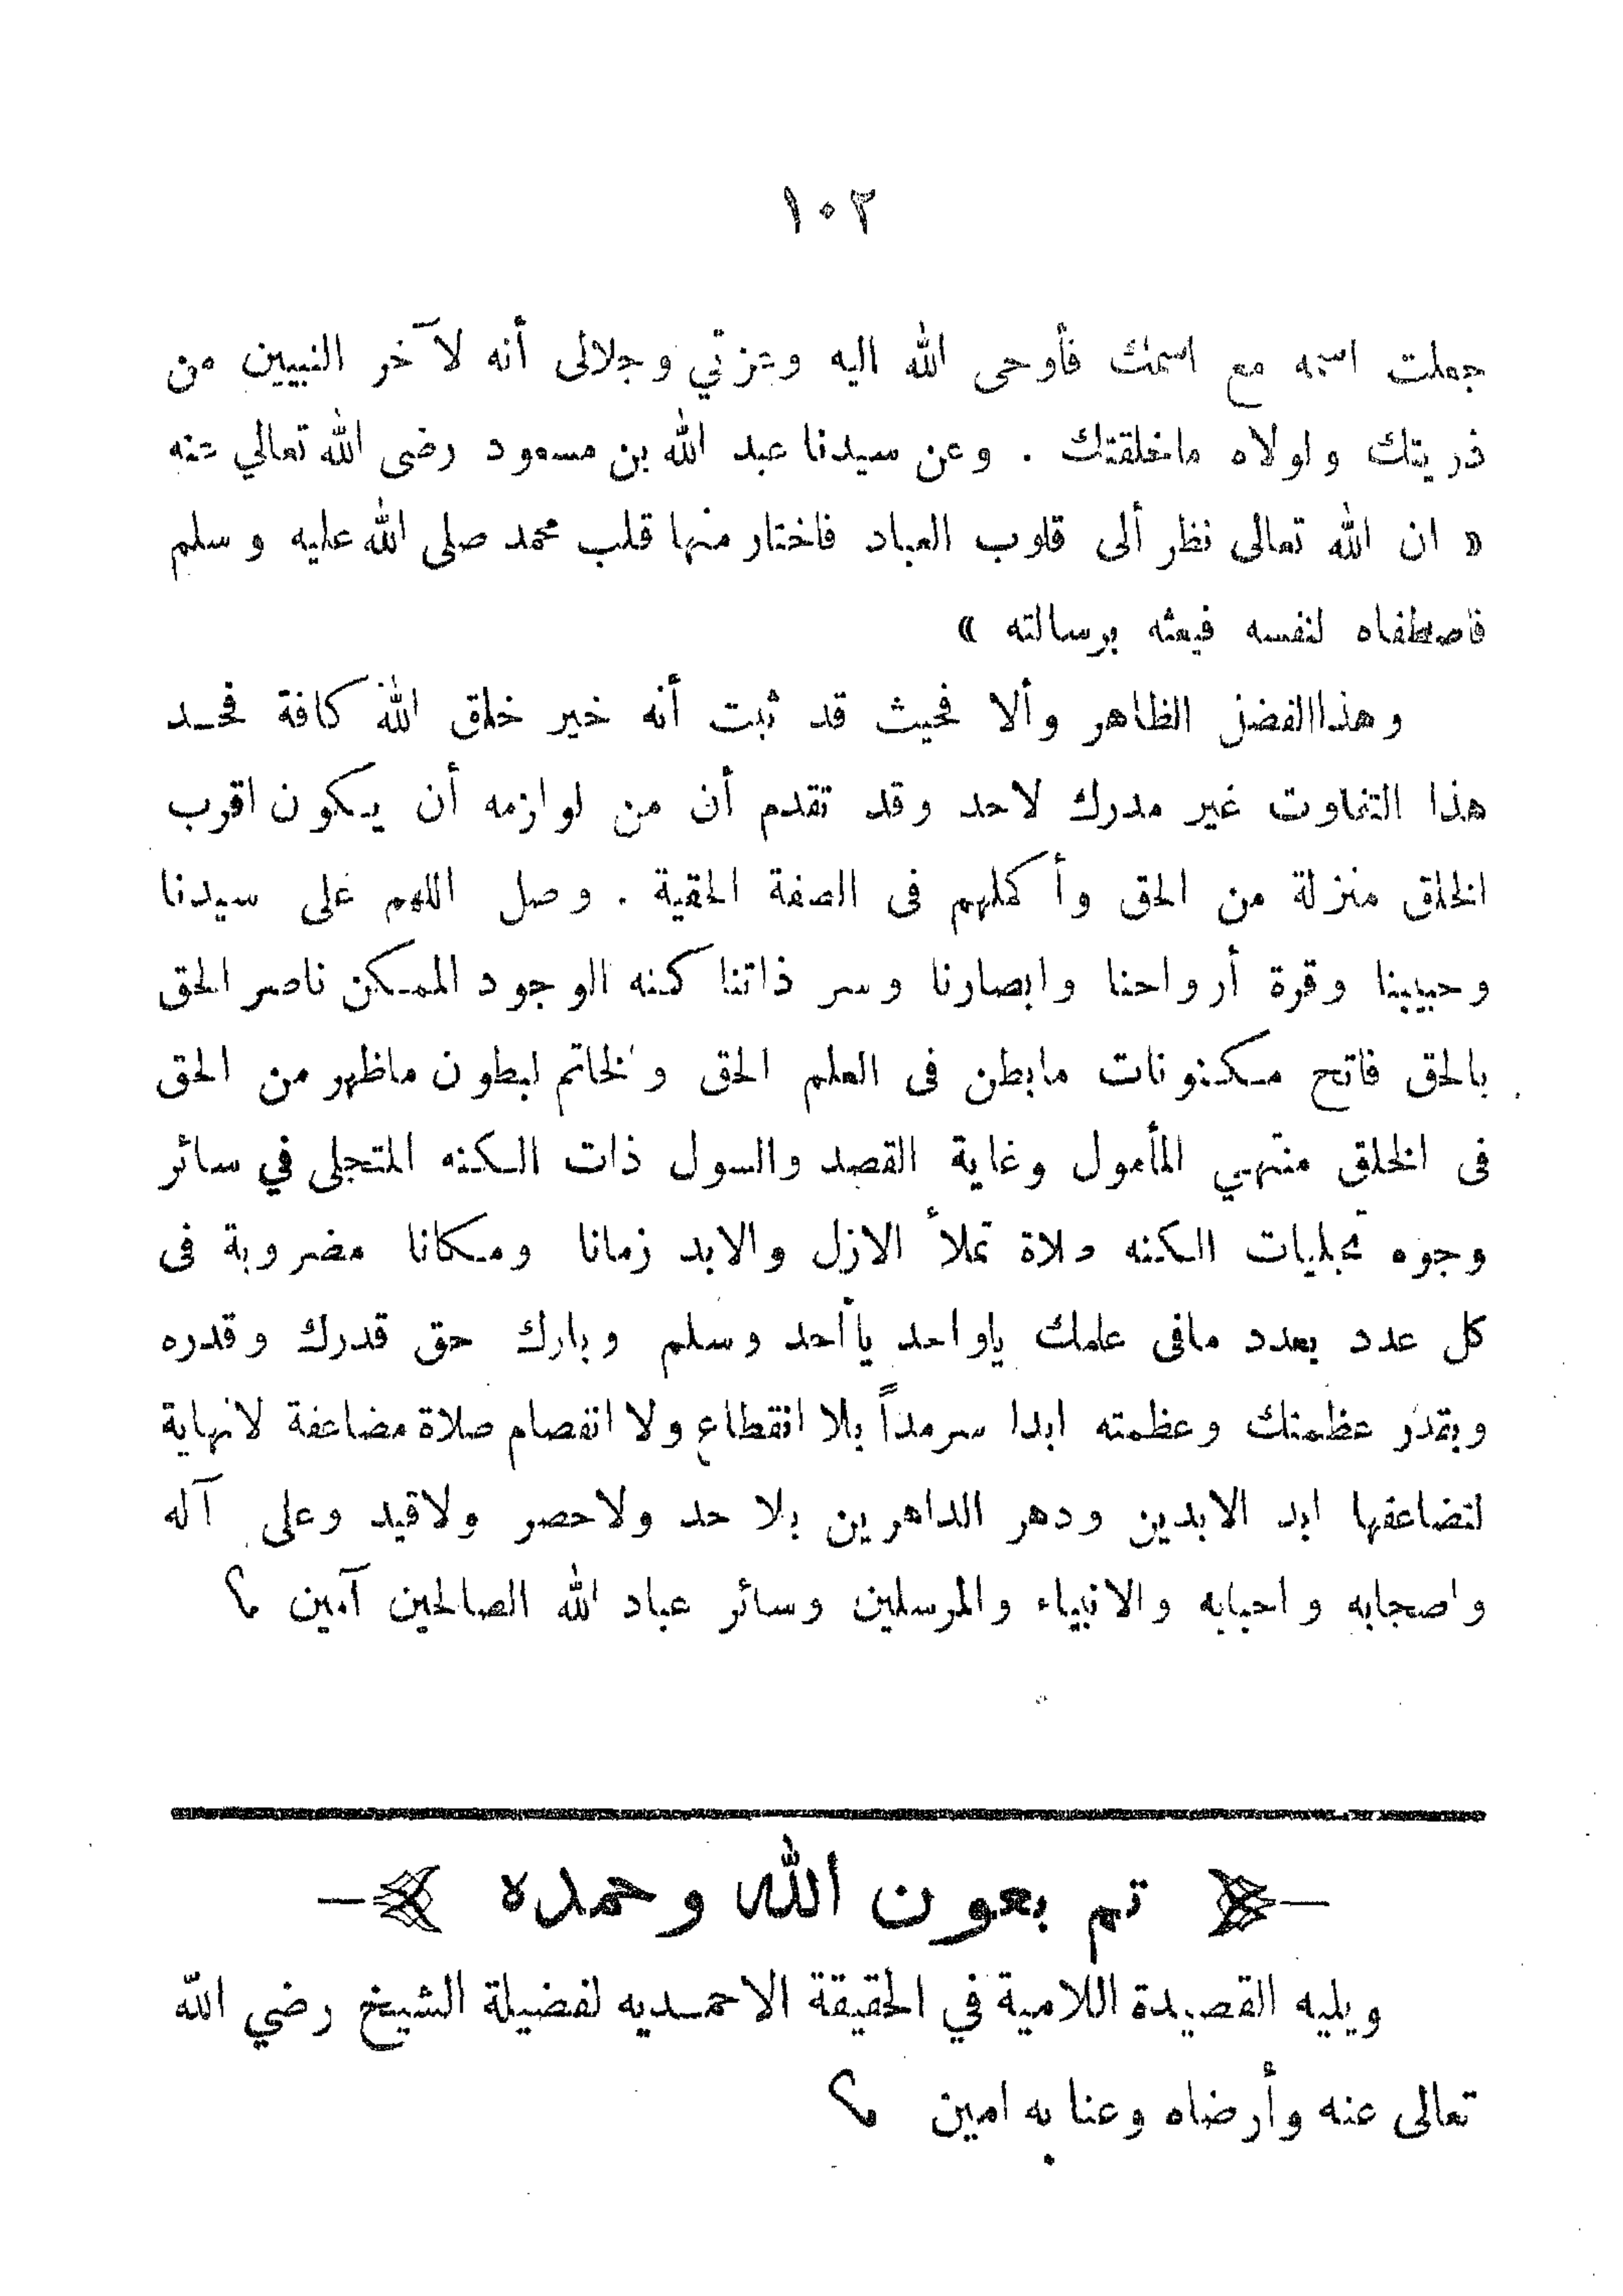 ١٠٢
جعلت اسمه مع اسمك فأوحى الله اليه وعزتي وجلالى أنه لآخر النبيين من
ذريتك ولولاه ماخلقتك . وعن سيدنا عبد الله بن مسعود رضى الله تعالي عنه
« ان الله تعالى نظر ألى قلوب العباد فاختار منها قلب محمد صلى الله عليه وسلم
فاصطفاه لنفسه فبعثه برسالته »
وهذا الفضل الظاهر وألا فحيث قد ثبت أنه خير خلق الله كافة فحد
هذا التفاوت غير مدرك لاحد وقد تقدم أن من لوازمه أن يكون اقرب
الخلق منزلة من الحق وأكملهم فى الصفة الحقية . وصل اللهم على سيدنا
وحبيبنا وقرة أرواحنا وابصارنا وسر ذاتنا كنه الوجود الممكن ناصر الحق
بالحق فاتح مكنونات مابطن فى العلم الحق والخاتم لبطون ماظهر من الحق
فى الخلق منتهي المأمول وغاية القصد والسول ذات الكنه المتجلى في سائر
وجوه تجليات الكنه صلاة تملأ الازل والابد زمانا ومكانا مضروبة فى
كل عدد بعدد مافى علمك ياواحد ياأحد وسلم وبارك حق قدرك وقدره
وبقدر عظمتك وعظمته ابدا سرمداً بلا انقطاع ولا انفصام صلاة مضاعفة لانهاية
لتضاعفها ابد الابدين ودهر الداهرين بلا حد ولاحصر ولاقيد وعلى آله
واصحابه واحبابه والانبياء والمرسلين وسائر عباد الله الصالحين آمين
تم بعون الله وحمده
ويليه القصيدة اللامية في الحقيقة الاحمديه لفضيلة الشيخ رضي الله
تعالى عنه وأرضاه وعنا به امين